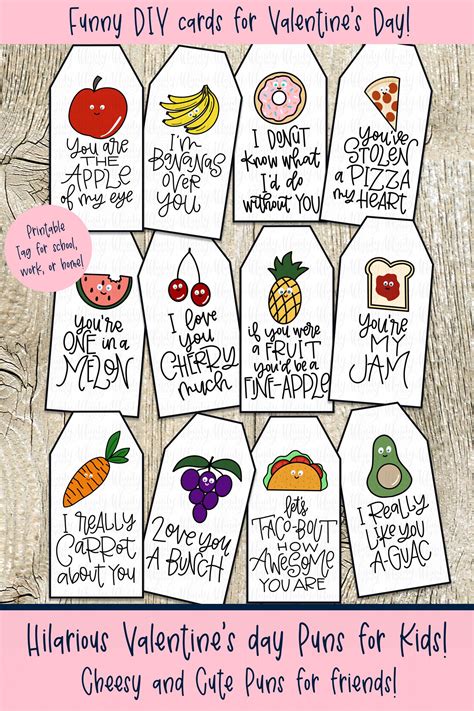 Funny DIY cards for Valentine's Day!
You are
THE
APPLE
of my eye
I'm
BANANAS
OVER
YOU
I DONUT
Know what
I'd do
without YOU
You've
STOLEN
a PIZZA
my HEART
Printable
Tag for school,
work, or home!
you're
ONE in a
MELON
I love
you
CHERRY
much
if you were
a FRUIT
you'd be a
FINE-APPLE
You're
MY
JAM
I really
CARROT
about YOU
Love you
A BUNCH
let's
TACO-BOUT
HOW
AWESOME
YOU ARE
I REALLY
Like YOU
A-GUAC
Hilarious Valentine's day Puns for Kids!
Cheesy and Cute Puns for friends!